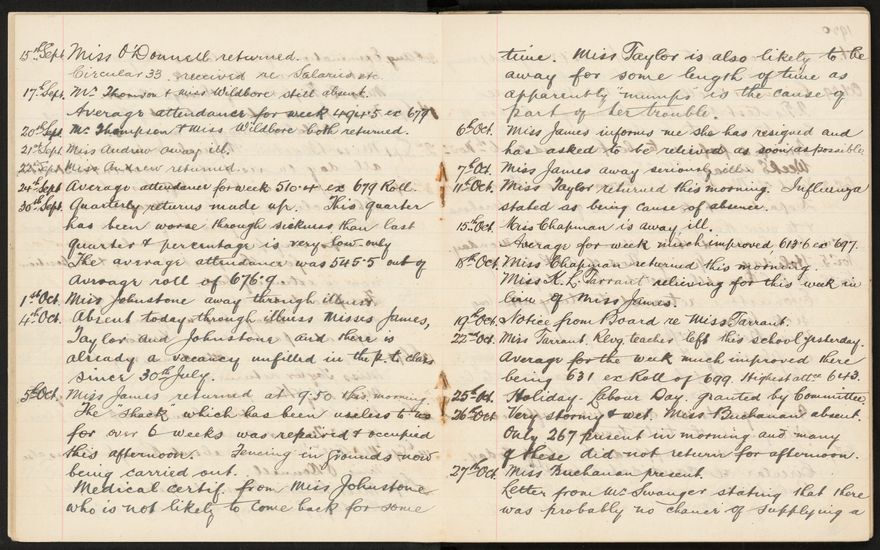 15th Sept. Miss O'Donnell returned.
Circular 33 received re Salaries etc.
17th Sept. Mr Thomson & Miss Wildbore still absent.
Average attendance for week 494.5 ex 679
20th Sept. Mr Thompson & Miss Wildbore both returned.
21st Sept Miss Andrew away ill.
22nd Sept Miss Andrew returned.
24th Sept Average attendance for week 510.4 ex 679 Roll.
30th Sept. Quarterly returns made up. This quarter
has been worse through sickness than last
quarter & percentage is very low – only
The average attendance was 545.5 out of
average roll of 676.9.
1st Oct. Miss Johnstone away through illness.
4th Oct. Absent today through illness Misses James,
Taylor and Johnstone and there is
already a vacancy unfilled in the p. t. class
since 30th July.
5th Oct. Miss James returned at 9.50 this morning.
The "Shack" which has been useless to us
for over 6 weeks was repaired & occupied
this afternoon. Fencing in grounds now
being carried out.
Medical certif. from Miss Johnstone
who is not likely to come back for some
1920
time. Miss Taylor is also likely to be
away for some length of time as
apparently "mumps" is the cause of
part of her trouble.
6th Oct. Miss James informs me she has resigned and
has asked to be relieved as soon as possible.
7th Oct. Miss James away seriously ill.
11th Oct. Miss Taylor returned this morning. Influenza
stated as being cause of absence.
15th Oct. Miss Chapman is away ill.
Average for week much improved 613.6 ex 697.
18th Oct. Miss Chapman returned this morning.
Miss K. L. Tarrant relieving for this week in
lieu of Miss James.
19th Oct. Notice from Board re Miss Tarrant.
22nd Oct. Miss Tarrant, Relvg. teacher left this school yesterday.
Average for the week much improved there
being 631 ex Roll of 699. Highest attce 643.
25th Oct. Holiday – Labour Day, granted by Committee.
26th Oct Very stormy & wet. Miss Buchanan absent.
Only 267 present in morning and many
of these did not return for afternoon.
27th Oct. Miss Buchanan present.
Letter from Mr Swanger stating that there
was probably no chance of supplying a